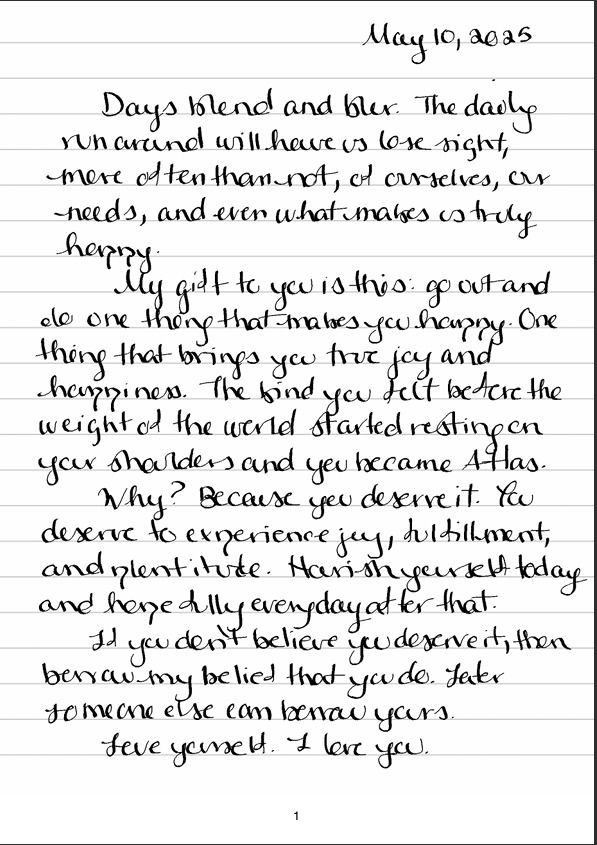 May 10, 2025
Days blend and blur. The daily
run around will have us lose sight,
more often than not, of ourselves, our
needs, and even what makes us truly
happy.
My gift to you is this: go out and
do one thing that makes you happy. One
thing that brings you true joy and
happiness. The kind you felt before the
weight of the world started resting on
your shoulders and you became Atlas.
Why? Because you deserve it. You
deserve to experience joy, fulfillment,
and plentitude. Nourish yourself today
and hopefully everyday after that.
If you don't believe you deserve it, then
borrow my belief that you do. Later
someone else can borrow yours.
Love yourself. I love you.
1